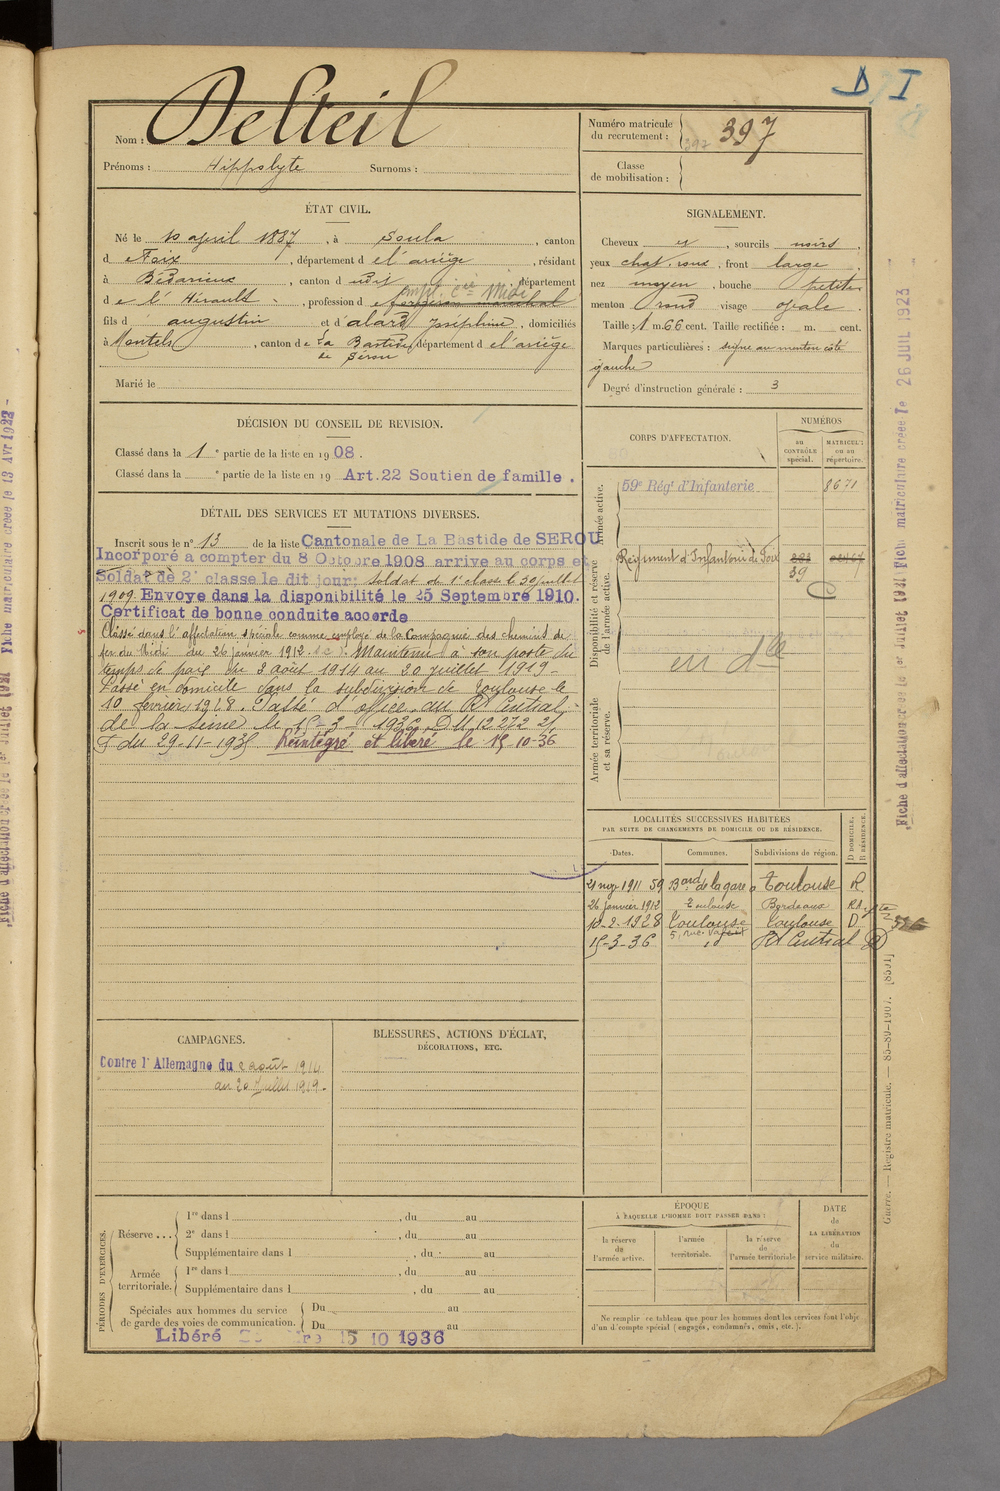 D I
Nom : Delteil
Prénoms : Hippolyte Surnoms :
Numéro matricule
du recrutement : 397
397
Classe
de mobilisation :
ÉTAT CIVIL.
Né le 10 april 1887, à Soula, canton
d e Foix, département d e l'ariège, résidant
à Bédarieux, canton d udit département
d e l'Hérault, profession d e forgeron maréchal
empl. Cie Midi
fils d augustin et d'alard Joséphine, domiciliés
à Montels, canton de La Bastide de Sérou, département d e l'ariège
Marié le
SIGNALEMENT.
Cheveux et, sourcils noirs,
yeux chat. roux, front large
nez moyen, bouche petite
menton rond visage ovale
Taille : 1 m. 66 cent. Taille rectifiée : m. cent.
Marques particulières : signe au menton côté
gauche
Degré d'instruction générale : 3
DÉCISION DU CONSEIL DE REVISION.
Classé dans la 1e partie de la liste en 1908.
Classé dans la e partie de la liste en 19 Art. 22 Soutien de famille.
DÉTAIL DES SERVICES ET MUTATIONS DIVERSES.
Inscrit sous le n° 13 de la liste Cantonale de La Bastide de SEROU
Incorporé a compter du 8 Octobre 1908 arrive au corps et
Soldat de 2e classe le dit jour; Soldat de 1e classe le 30 juillet
1909. Envoye dans la disponibilité le 25 Septembre 1910.
Certificat de bonne conduite accorde
Classé dans l'affectation spéciale comme employé de la Compagnie des chemins de
fer du Midi du 26 janvier 1912. Maintenu à son poste du
temps de paix du 2 août 1914 au 20 juillet 1919 -
Passé en domicile dans la subdivision de Toulouse le
10 février 1928. Passé d'office au Rt Central
de la Seine le 15-3-1936 DM 12272 2/
du 29-11-1935 Réintégré et libéré le 15-10-36
CORPS D'AFFECTATION.
NUMÉROS
au
CONTRÔLE
spécial.
MATRICUL:
ou au
répertoire.
Armée active.
59e Régt d'Infanterie 8671
Disponibilité et réserve
de l'armée active.
Régiment d'Infanterie de Foix
39
en dlle
Armée territoriale
et sa réserve.
LOCALITÉS SUCCESSIVES HABITÉES
PAR SUITE DE CHANGEMENTS DE DOMICILE OU DE RÉSIDENCE.
Dates. Communes. Subdivisions de région. D DOMICILE, R RÉSIDENCE.
21 nov 1911 59 Bard de la gare Toulouse R.
26 janvier 1912 Toulouse Bordeaux
10-2-1928 Toulouse Toulouse D
15-3-36 Rt Central D
CAMPAGNES.
Contre l'Allemagne du 2 août 1914
au 20 juillet 1919.
BLESSURES, ACTIONS D'ÉCLAT,
DÉCORATIONS, ETC.
PÉRIODES D'EXERCICES.
Réserve ...
1re dans l , du au
2e dans l , du au
Supplémentaire dans l , du au
Armée
territoriale.
1re dans l , du au
Supplémentaire dans l , du au
Spéciales aux hommes du service
de garde des voies de communication.
Du au
Du au
Libéré 15 10 1936
ÉPOQUE
À LAQUELLE L'HOMME DOIT PASSER DANS :
la réserve
de
l'armée active.
l'armée
territoriale.
la réserve
de
l'armée territoriale
DATE
de
LA LIBÉRATION
du
service militaire.
Ne remplir ce tableau que pour les hommes dont les services font l'obje
d'un d'compte spécial (engagés, condamnés, omis, etc.).
Fiche d'affectation créée le 1er Juillet 1931 Fiche matriculaire creee le 26 JUIL 1923
Guerre. — Registre matricule. — 85-89-1907. [8591]
Fiche matriculaire créée le 13 Avr 1922 -